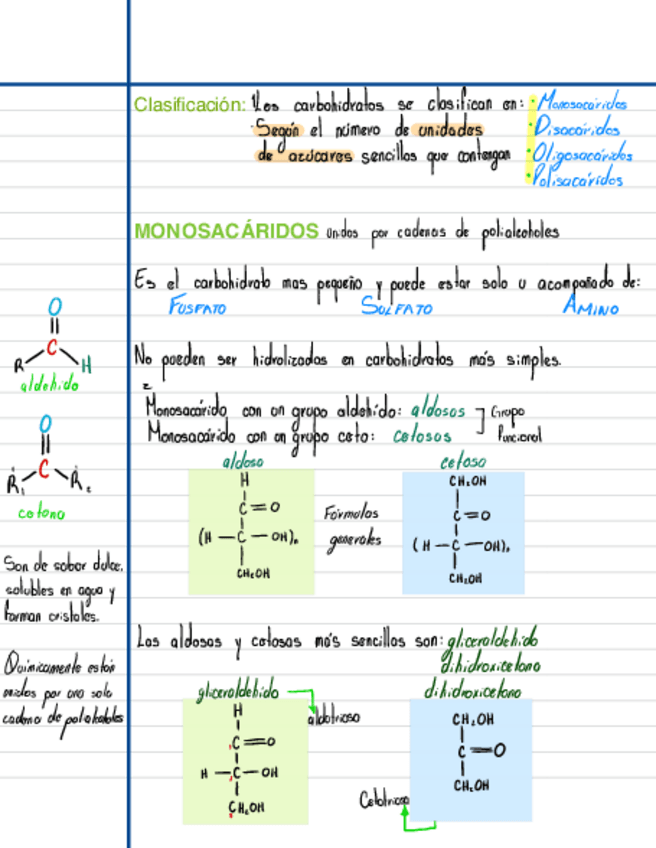 Clasificación: Los carbohidratos se clasifican en: · Monosacáridos
Según el número de unidades · Disacáridos
de azúcares sencillos que contengan · Oligosacáridos
· Polisacáridos
MONOSACÁRIDOS Unidos por cadenas de polialcoholes
Es el carbohidrato mas pequeño y puede estar solo u acompañado de:
FOSFATO SULFATO AMINO
O
C
R H
aldehido
No pueden ser hidrolizados en carbohidratos más simples.
Monosacárido con un grupo aldehído: aldosas
Monosacárido con un grupo ceto: cetosas
Grupo
Funcional
O
C
R₁ R₂
cetona
aldosa
H
C=O
(H—C—OH)ₙ
CH₂OH
Fórmulas
generales
cetosa
CH₂OH
C=O
(H—C—OH)ₙ
CH₂OH
Son de sabor dulce,
solubles en agua y
forman cristales.
Quimicamente están
unidos por una sola
cadena de polialcoholes
Las aldosas y cetosas más sencillas son: gliceraldehido
dihidroxicetona
gliceraldehido
aldotriosa
H
C=O
H—C—OH
CH₂OH
dihidroxicetona
CH₂OH
C=O
CH₂OH
Cetotriosa